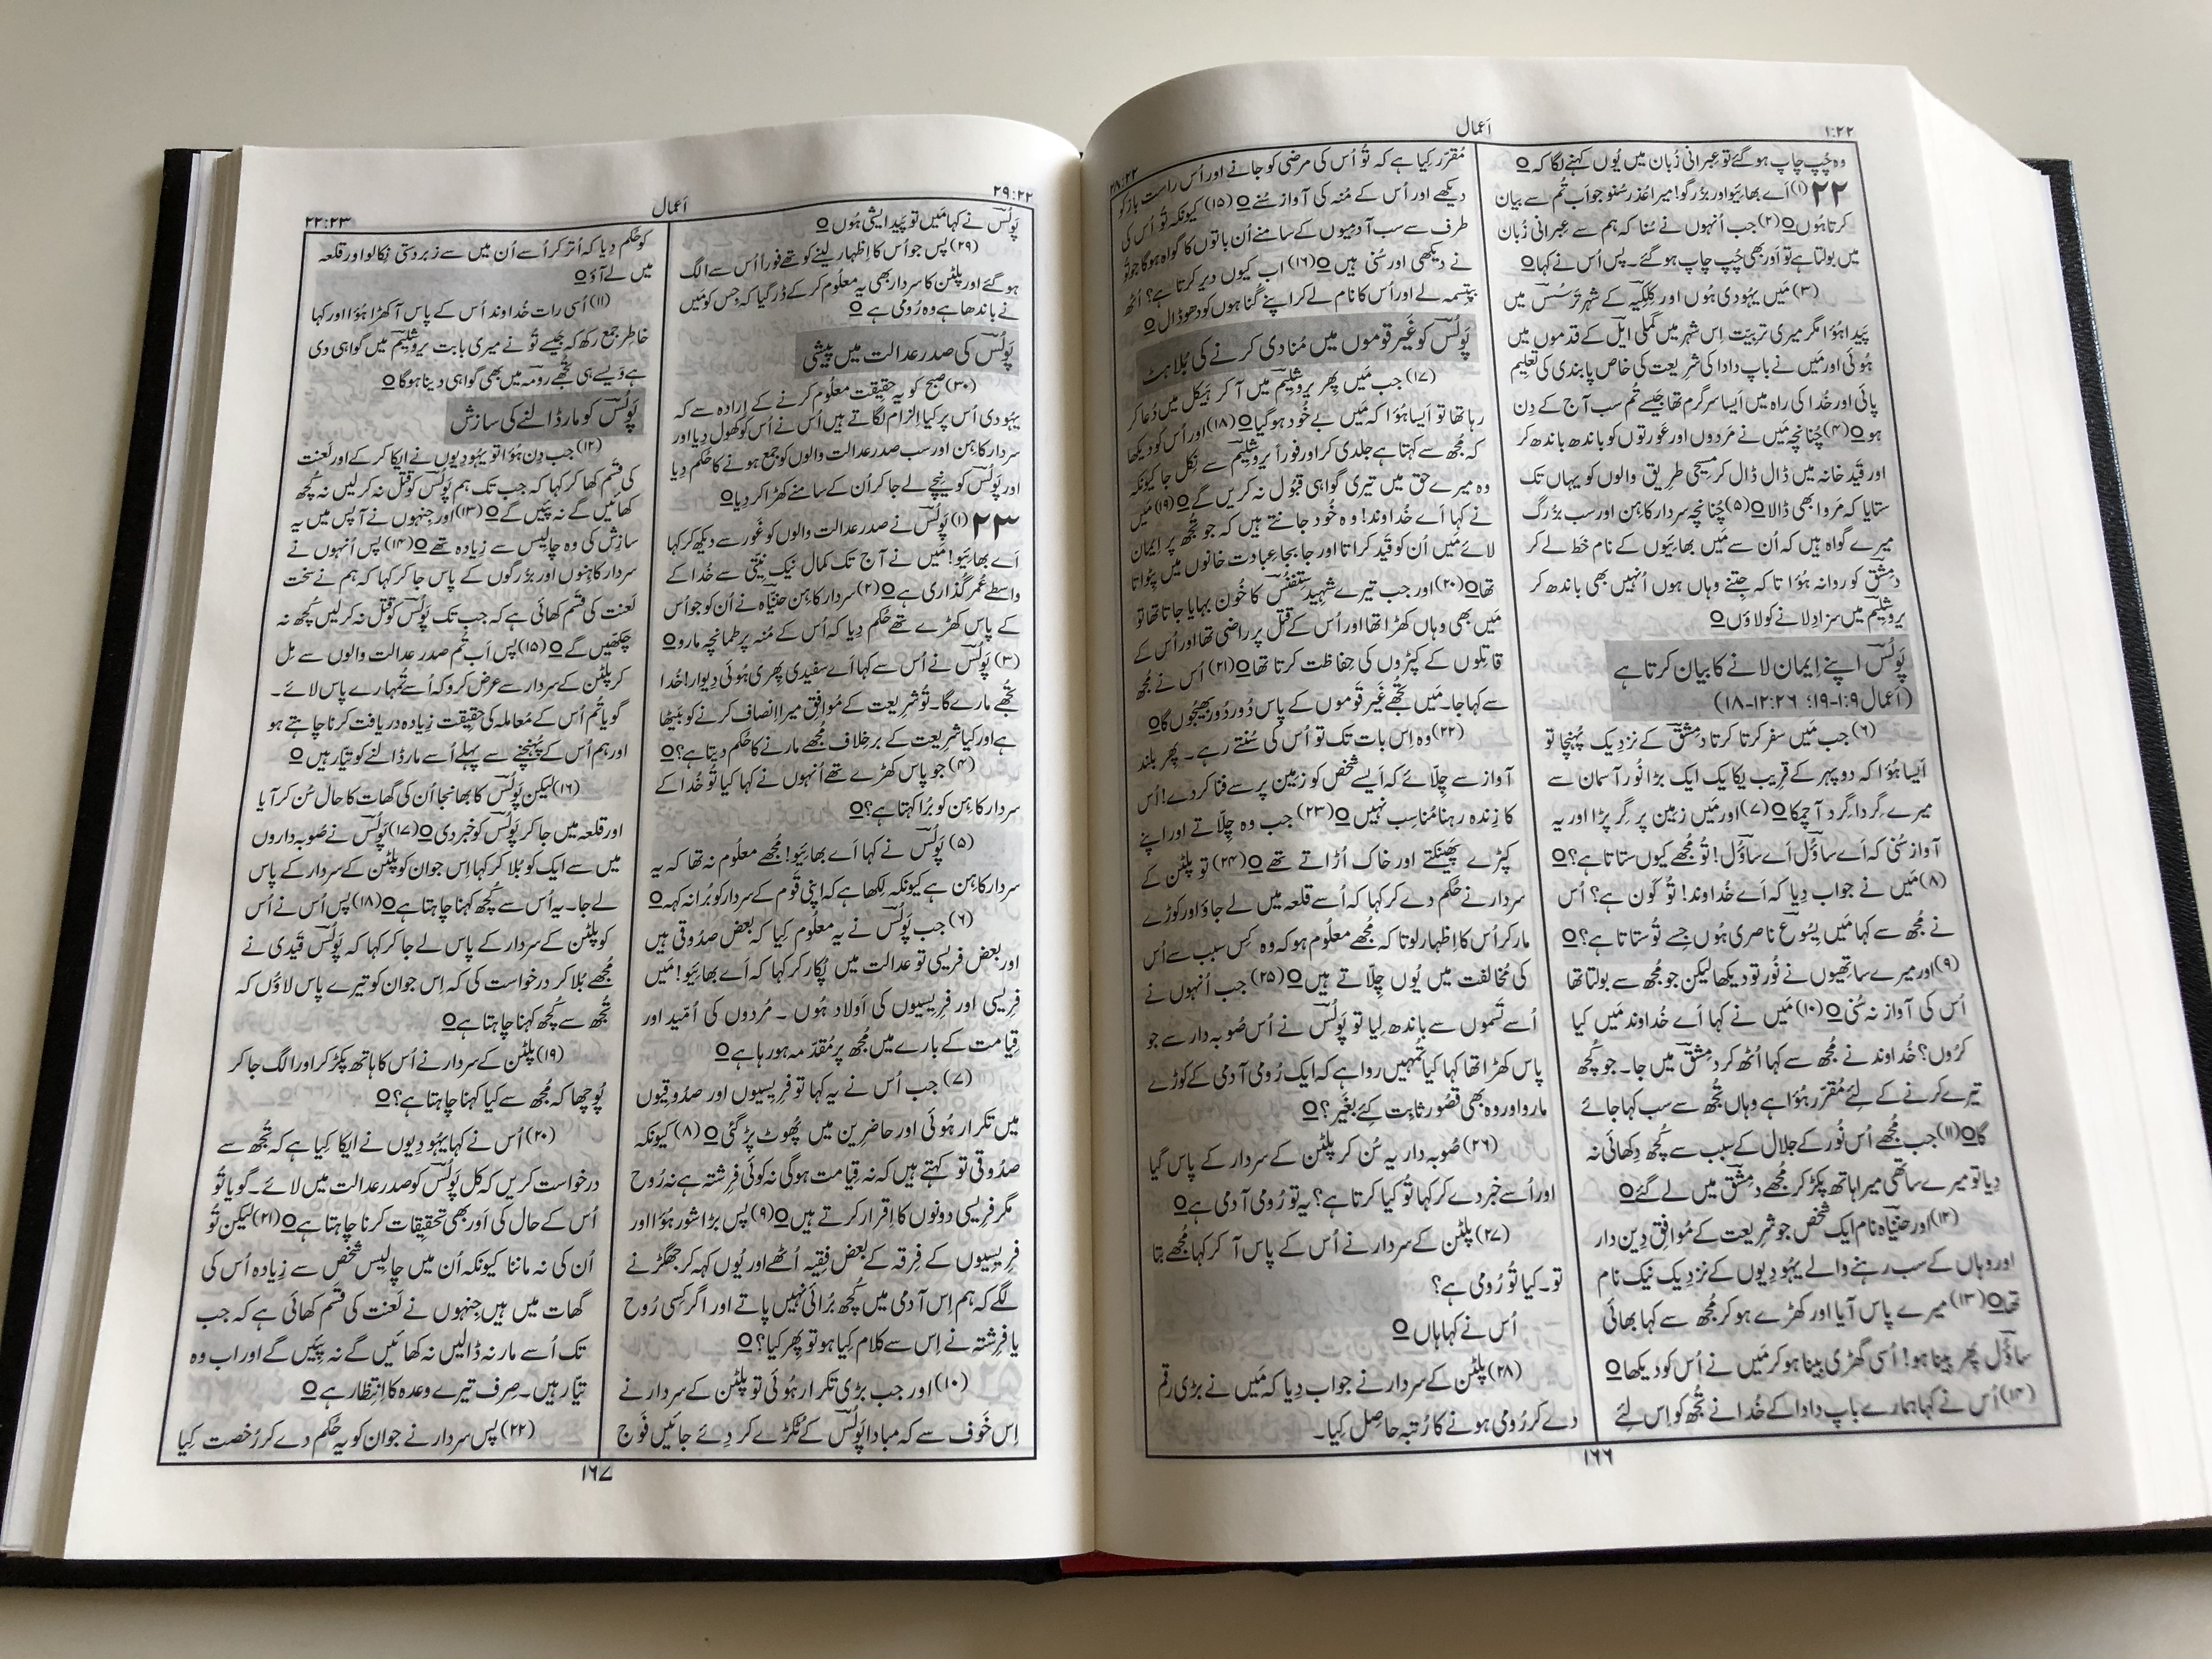 ۱:۲۲
اَعمال
۲۸:۲۲
وہ چُپ چاپ ہو گئے تو عِبرانی زُبان میں یُوں کہنے لگا کہ ○
۲۲ (۱) اَے بھائِیو اور بزُرگو! میرا عُذر سُنو جو اَب تُم سے بیان
کرتا ہُوں ○ (۲) جب اُنہوں نے سُنا کہ ہم سے عِبرانی زُبان
میں بولتا ہے تو اَور بھی چُپ چاپ ہو گئے۔ پس اُس نے کہا ○
(۳) مَیں یہُودی ہُوں اور کِلِکیہ کے شہر ترسُس میں
پَیدا ہُؤا مگر میری تربیّت اِس شہر میں گملی ایل کے قدموں میں
ہُوئی اور مَیں نے باپ دادا کی شرِیعت کی خاص پابندی کی تعلِیم
پائی اور خُدا کی راہ میں اَیسا سرگرم تھا جَیسے تُم سب آج کے دِن
ہو ○ (۴) چُنانچہ مَیں نے مَردوں اور عَورتوں کو باندھ باندھ کر
اور قَید خانہ میں ڈال ڈال کر مسیحی طرِیق والوں کو یہاں تک
ستایا کہ مَروا بھی ڈالا ○ (۵) چُنانچہ سردار کاہِن اور سب بزُرگ
میرے گواہ ہیں کہ اُن سے مَیں بھائِیوں کے نام خط لے کر
دمِشق کو روانہ ہُؤا تاکہ جِتنے وہاں ہوں اُنہیں بھی باندھ کر
یروشلِیم میں سزا دِلانے کو لاؤں ○
پَولُس اپنے اِیمان لانے کا بیان کرتا ہے
(اَعمال ۱:۹-۱۹؛ ۱۲:۲۶-۱۸)
(۶) جب مَیں سفر کرتا کرتا دمِشق کے نزدِیک پُہنچا تو
اَیسا ہُؤا کہ دوپہر کے قرِیب یکایک ایک بڑا نُور آسمان سے
میرے گِرداگِرد آ چمکا ○ (۷) اور مَیں زمِین پر گِر پڑا اور یہ
آواز سُنی کہ اَے ساؤل اَے ساؤل! تُو مُجھے کیوں ستاتا ہے؟ ○
(۸) مَیں نے جواب دِیا کہ اَے خُداوند! تُو کَون ہے؟ اُس
نے مُجھ سے کہا مَیں یِسُوع ناصری ہُوں جِسے تُو ستاتا ہے؟ ○
(۹) اور میرے ساتھیوں نے نُور تو دیکھا لیکن جو مُجھ سے بولتا تھا
اُس کی آواز نہ سُنی ○ (۱۰) مَیں نے کہا اَے خُداوند مَیں کیا
کرُوں؟ خُداوند نے مُجھ سے کہا اُٹھ کر دمِشق میں جا۔ جو کُچھ
تیرے کرنے کے لِئے مُقرّر ہُؤا ہے وہاں تُجھ سے سب کہا جائے
گا ○ (۱۱) جب مُجھے اُس نُور کے جلال کے سبب سے کُچھ دِکھائی نہ
دِیا تو میرے ساتھی میرا ہاتھ پکڑ کر مُجھے دمِشق میں لے گئے ○
(۱۲) اور حننیاہ نام ایک شخص جو شرِیعت کے مُوافِق دِین دار
اور وہاں کے سب رہنے والے یہُودِیوں کے نزدِیک نیک نام
تھا ○ (۱۳) میرے پاس آیا اور کھڑے ہو کر مُجھ سے کہا بھائی
ساؤل پِھر بِینا ہو! اُسی گھڑی بِینا ہو کر مَیں نے اُس کو دیکھا ○
(۱۴) اُس نے کہا ہمارے باپ دادا کے خُدا نے تُجھ کو اِس لِئے
مُقرّر کِیا ہے کہ تُو اُس کی مرضی کو جانے اور اُس راست باز کو
دیکھے اور اُس کے مُنہ کی آواز سُنے ○ (۱۵) کیونکہ تُو اُس کی
طرف سے سب آدمِیوں کے سامنے اُن باتوں کا گواہ ہوگا جو تُو
نے دیکھی اور سُنی ہیں ○ (۱۶) اب کیوں دیر کرتا ہے؟ اُٹھ
بپتِسمہ لے اور اُس کا نام لے کر اپنے گُناہوں کو دھو ڈال ○
پَولُس کو غَیر قَوموں میں مُنادی کرنے کی بُلاہٹ
(۱۷) جب مَیں پِھر یروشلِیم میں آ کر ہَیکل میں دُعا کر
رہا تھا تو اَیسا ہُؤا کہ مَیں بے خُود ہو گیا ○ (۱۸) اور اُس کو دیکھا
کہ مُجھ سے کہتا ہے جلدی کر اور فوراً یروشلِیم سے نِکل جا کیونکہ
وہ میرے حق میں تیری گواہی قبُول نہ کریں گے ○ (۱۹) مَیں
نے کہا اَے خُداوند! وہ خُود جانتے ہیں کہ جو تُجھ پر اِیمان
لائے مَیں اُن کو قَید کراتا اور جابجا عِبادت خانوں میں پِٹواتا
تھا ○ (۲۰) اور جب تیرے شہِید ستِفنُس کا خُون بہایا جاتا تھا تو
مَیں بھی وہاں کھڑا تھا اور اُس کے قتل پر راضی تھا اور اُس کے
قاتِلوں کے کپڑوں کی حِفاظت کرتا تھا ○ (۲۱) اُس نے مُجھ
سے کہا جا۔ مَیں تُجھے غَیر قَوموں کے پاس دُور دُور بھیجُوں گا ○
(۲۲) وہ اِس بات تک تو اُس کی سُنتے رہے۔ پِھر بلند
آواز سے چِلّائے کہ اَیسے شخص کو زمِین پر سے فنا کر دے! اُس
کا زِندہ رہنا مُناسِب نہیں ○ (۲۳) جب وہ چِلّاتے اور اپنے
کپڑے پھینکتے اور خاک اُڑاتے تھے ○ (۲۴) تو پلٹن کے
سردار نے حُکم دے کر کہا کہ اُسے قلعہ میں لے جاؤ اور کوڑے
مار کر اُس کا اِظہار لو تا کہ مُجھے معلُوم ہو کہ وہ کِس سبب سے اُس
کی مُخالفت میں یُوں چِلّاتے ہیں ○ (۲۵) جب اُنہوں نے
اُسے تسموں سے باندھ لِیا تو پَولُس نے اُس صُوبہ دار سے جو
پاس کھڑا تھا کہا کیا تُمہیں روا ہے کہ ایک رُومی آدمی کے کوڑے
مارو اور وہ بھی قصُور ثابِت کِئے بغَیر؟ ○
(۲۶) صُوبہ دار یہ سُن کر پلٹن کے سردار کے پاس گیا
اور اُسے خبر دے کر کہا تُو کیا کرتا ہے؟ یہ تو رُومی آدمی ہے ○
(۲۷) پلٹن کے سردار نے اُس کے پاس آ کر کہا مُجھے بتا
تو۔ کیا تُو رُومی ہے؟
اُس نے کہا ہاں ○
(۲۸) پلٹن کے سردار نے جواب دِیا کہ مَیں نے بڑی رقم
دے کر رُومی ہونے کا رُتبہ حاصِل کِیا۔
۱۶۶
۲۹:۲۲
اَعمال
۲۲:۲۳
پَولُس نے کہا مَیں تو پَیدایشی ہُوں ○
(۲۹) پس جو اُس کا اِظہار لینے کو تھے فوراً اُس سے الگ
ہو گئے اور پلٹن کا سردار بھی یہ معلُوم کر کے ڈر گیا کہ جِس کو مَیں
نے باندھا ہے وہ رُومی ہے ○
پَولُس کی صدر عدالت میں پیشی
(۳۰) صُبح کو یہ حقِیقت معلُوم کرنے کے اِرادہ سے کہ
یہُودی اُس پر کیا اِلزام لگاتے ہیں اُس نے اُس کو کھول دِیا اور
سردار کاہِن اور سب صدر عدالت والوں کو جمع ہونے کا حُکم دِیا
اور پَولُس کو نِیچے لے جا کر اُن کے سامنے کھڑا کر دِیا ○
۲۳ (۱) پَولُس نے صدر عدالت والوں کو غَور سے دیکھ کر کہا
اَے بھائِیو! مَیں نے آج تک کمال نیک نِیّتی سے خُدا کے
واسطے عُمر گُذاری ہے ○ (۲) سردار کاہِن حننیاہ نے اُن کو جو اُس
کے پاس کھڑے تھے حُکم دِیا کہ اُس کے مُنہ پر طمانچہ مارو ○
(۳) پَولُس نے اُس سے کہا اَے سفیدی پِھری ہُوئی دِیوار! خُدا
تُجھے مارے گا۔ تُو شرِیعت کے مُوافِق میرا اِنصاف کرنے کو بَیٹھا
ہے اور کیا شرِیعت کے برخِلاف مُجھے مارنے کا حُکم دیتا ہے؟ ○
(۴) جو پاس کھڑے تھے اُنہوں نے کہا کیا تُو خُدا کے
سردار کاہِن کو بُرا کہتا ہے؟ ○
(۵) پَولُس نے کہا اَے بھائِیو! مُجھے معلُوم نہ تھا کہ یہ
سردار کاہِن ہے کیونکہ لِکھا ہے کہ اپنی قَوم کے سردار کو بُرا نہ کہہ ○
(۶) جب پَولُس نے یہ معلُوم کِیا کہ بعض صدُوقی ہیں
اور بعض فریسی تو عدالت میں پُکار کر کہا کہ اَے بھائِیو! مَیں
فرِیسی اور فرِیسیوں کی اَولاد ہُوں۔ مُردوں کی اُمّید اور
قِیامت کے بارے میں مُجھ پر مُقدّمہ ہو رہا ہے ○
(۷) جب اُس نے یہ کہا تو فرِیسیوں اور صدُوقیوں
میں تکرار ہُوئی اور حاضِرین میں پُھوٹ پڑ گئی ○ (۸) کیونکہ
صدُوقی تو کہتے ہیں کہ نہ قِیامت ہوگی نہ کوئی فرِشتہ ہے نہ رُوح
مگر فرِیسی دونوں کا اِقرار کرتے ہیں ○ (۹) پس بڑا شور ہُؤا اور
فرِیسیوں کے فِرقہ کے بعض فقِیہ اُٹھے اور یُوں کہہ کر جھگڑنے
لگے کہ ہم اِس آدمی میں کُچھ بُرائی نہیں پاتے اور اگر کِسی رُوح
یا فرِشتہ نے اِس سے کلام کِیا ہو تو پِھر کیا؟ ○
(۱۰) اور جب بڑی تکرار ہُوئی تو پلٹن کے سردار نے
اِس خَوف سے کہ مبادا پَولُس کے ٹُکڑے کر دِئے جائیں فَوج
کو حُکم دِیا کہ اُتر کر اُسے اُن میں سے زبردستی نِکالو اور قلعہ
میں لے آؤ ○
(۱۱) اُسی رات خُداوند اُس کے پاس آ کھڑا ہُؤا اور کہا
خاطِر جمع رکھ کہ جَیسے تُو نے میری بابت یروشلِیم میں گواہی دی
ہے وَیسے ہی تُجھے رومہ میں بھی گواہی دینا ہوگا ○
پَولُس کو مار ڈالنے کی سازش
(۱۲) جب دِن ہُؤا تو یہُودِیوں نے ایکا کر کے اور لَعنت
کی قَسم کھا کر کہا کہ جب تک ہم پَولُس کو قتل نہ کر لیں نہ کُچھ
کھائیں گے نہ پئیں گے ○ (۱۳) اور جِنہوں نے آپس میں یہ
سازِش کی وہ چالِیس سے زِیادہ تھے ○ (۱۴) پس اُنہوں نے
سردار کاہِنوں اور بزُرگوں کے پاس جا کر کہا کہ ہم نے سخت
لَعنت کی قَسم کھائی ہے کہ جب تک پَولُس کو قتل نہ کر لیں کُچھ نہ
چکھیں گے ○ (۱۵) پس اَب تُم صدر عدالت والوں سے مِل
کر پلٹن کے سردار سے عرض کرو کہ اُسے تُمہارے پاس لائے۔
گویا تُم اُس کے مُعاملہ کی حقِیقت زِیادہ دریافت کرنا چاہتے ہو
اور ہم اُس کے پُہنچنے سے پہلے اُسے مار ڈالنے کو تیّار ہیں ○
(۱۶) لیکن پَولُس کا بھانجا اُن کی گھات کا حال سُن کر آیا
اور قلعہ میں جا کر پَولُس کو خبر دی ○ (۱۷) پَولُس نے صُوبہ داروں
میں سے ایک کو بُلا کر کہا اِس جوان کو پلٹن کے سردار کے پاس
لے جا۔ یہ اُس سے کُچھ کہنا چاہتا ہے ○ (۱۸) پس اُس نے اُس
کو پلٹن کے سردار کے پاس لے جا کر کہا کہ پَولُس قَیدی نے
مُجھے بُلا کر درخواست کی کہ اِس جوان کو تیرے پاس لاؤں کہ
تُجھ سے کُچھ کہنا چاہتا ہے ○
(۱۹) پلٹن کے سردار نے اُس کا ہاتھ پکڑ کر اور الگ جا کر
پُوچھا کہ مُجھ سے کیا کہنا چاہتا ہے؟ ○
(۲۰) اُس نے کہا یہُودِیوں نے ایکا کِیا ہے کہ تُجھ سے
درخواست کریں کہ کل پَولُس کو صدر عدالت میں لائے۔ گویا تُو
اُس کے حال کی اَور بھی تحقِیقات کرنا چاہتا ہے ○ (۲۱) لیکن تُو
اُن کی نہ ماننا کیونکہ اُن میں چالِیس شخص سے زِیادہ اُس کی
گھات میں ہیں جِنہوں نے لَعنت کی قَسم کھائی ہے کہ جب
تک اُسے مار نہ ڈالیں نہ کھائیں گے نہ پِئیں گے اور اب وہ
تیّار ہیں۔ صِرف تیرے وعدہ کا اِنتظار ہے ○
(۲۲) پس سردار نے جوان کو یہ حُکم دے کر رُخصت کِیا
۱۶۷